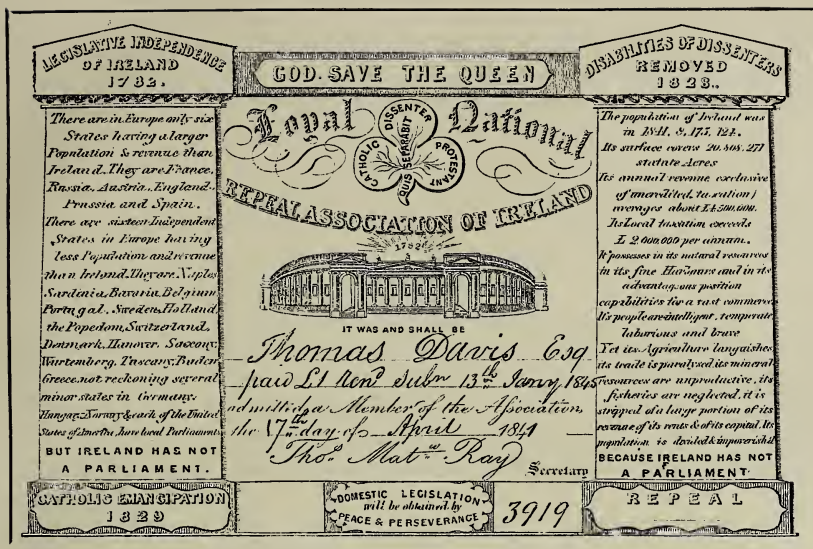 LEGISLATIVE INDEPENDENCE
OF IRELAND
1782.
GOD SAVE THE QUEEN
DISABILITIES OF DISSENTERS
REMOVED
1828.
There are in Europe only six
States having a larger
Population & revenue than
Ireland. They are France,
Russia, Austria, England,
Prussia and Spain.
There are sixteen Independent
States in Europe having
less Population and revenue
than Ireland. They are Naples
Sardinia, Bavaria, Belgium
Portugal, Sweden, Holland
the Popedom, Switzerland,
Denmark, Hanover, Saxony,
Wurtemberg, Tuscany, Baden
Greece, not reckoning several
minor states in Germany.
Hungary, Norway & each of the United
States of America, have local Parliaments
BUT IRELAND HAS NOT
A PARLIAMENT.
CATHOLIC EMANCIPATION
1829
Loyal National
CATHOLIC DISSENTER PROTESTANT
QUIS SEPARABIT
REPEAL ASSOCIATION OF IRELAND
1782
IT WAS AND SHALL BE
Thomas Davis Esq
paid £1 Rend Subn 13th Jany 1845
admitted a Member of the Association
the 17th day of April 1841
Thos Matw Ray
Secretary
DOMESTIC LEGISLATION
will be obtained by
PEACE & PERSEVERANCE
3919
The population of Ireland was
in 1841. 8,175,124.
Its surface covers 20,808,271
statute Acres
Its annual revenue exclusive
of uncredited taxation
averages about £4,500,000.
Its Local taxation exceeds
£ 2,000,000 per annum.
It possesses in its natural resources
in its fine Harbours and in its
advantageous position
capabilities for a vast commerce
Its people are intelligent, temperate
laborious and brave
Yet its Agriculture languishes
its trade is paralysed, its mineral
resources are unproductive, its
fisheries are neglected, it is
stripped of a large portion of its
revenue of its rents & of its capital. Its
population is derided & impoverish'd
BECAUSE IRELAND HAS NOT
A PARLIAMENT.
REPEAL